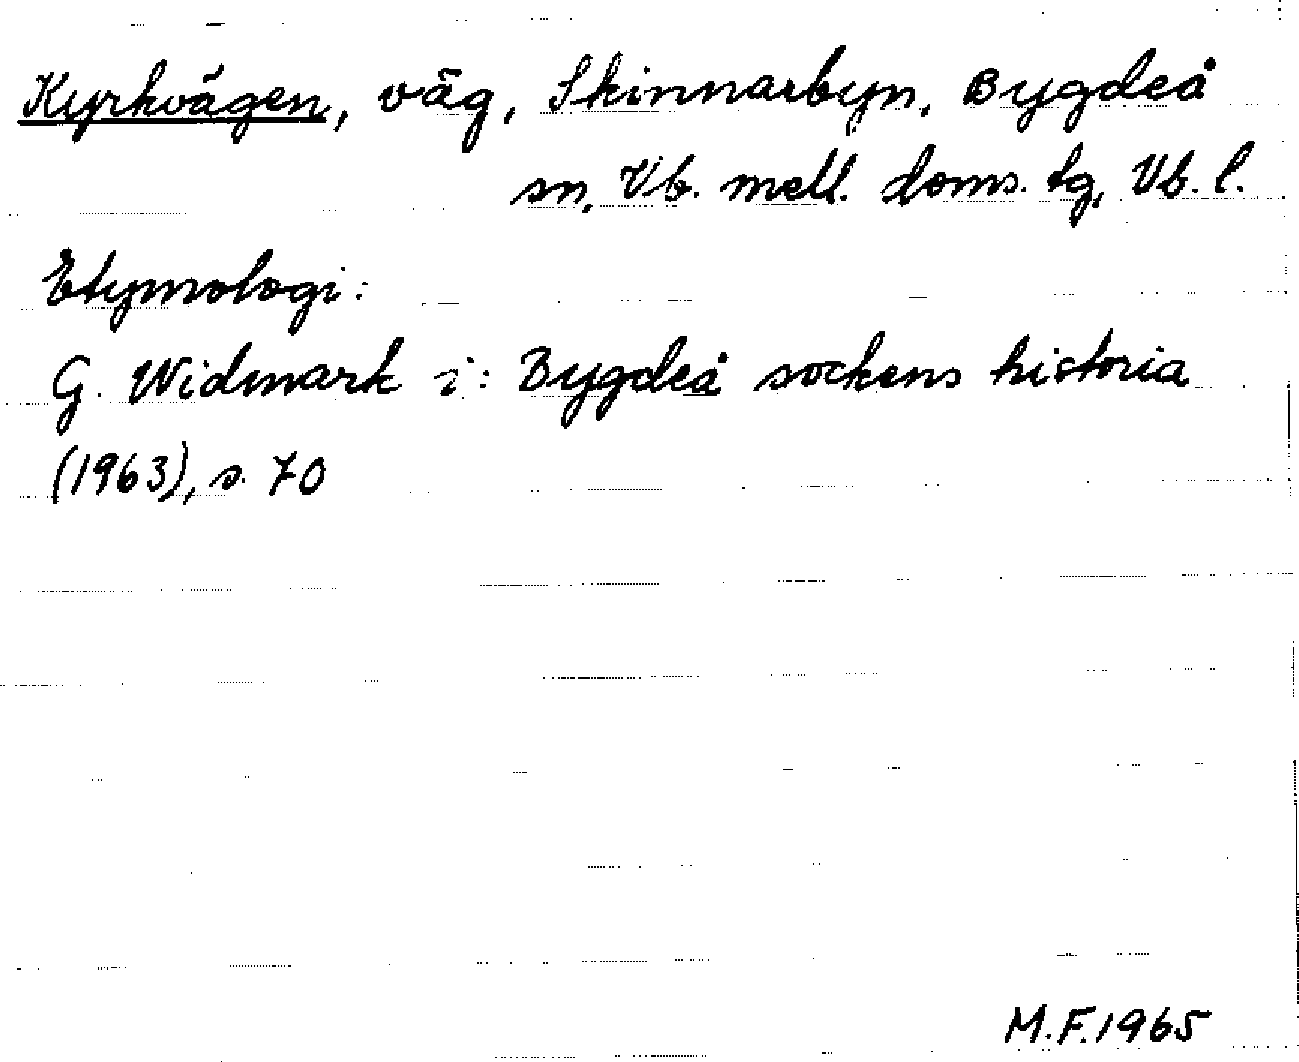 Kyrkvägen, väg, Skinnarbyn, Bygdeå
sn, Vb. mell. doms. tg, Vb. l.
Etymologi:
G. Widmark i: Bygdeå sockens historia
(1963), s. 70
M.F. 1965